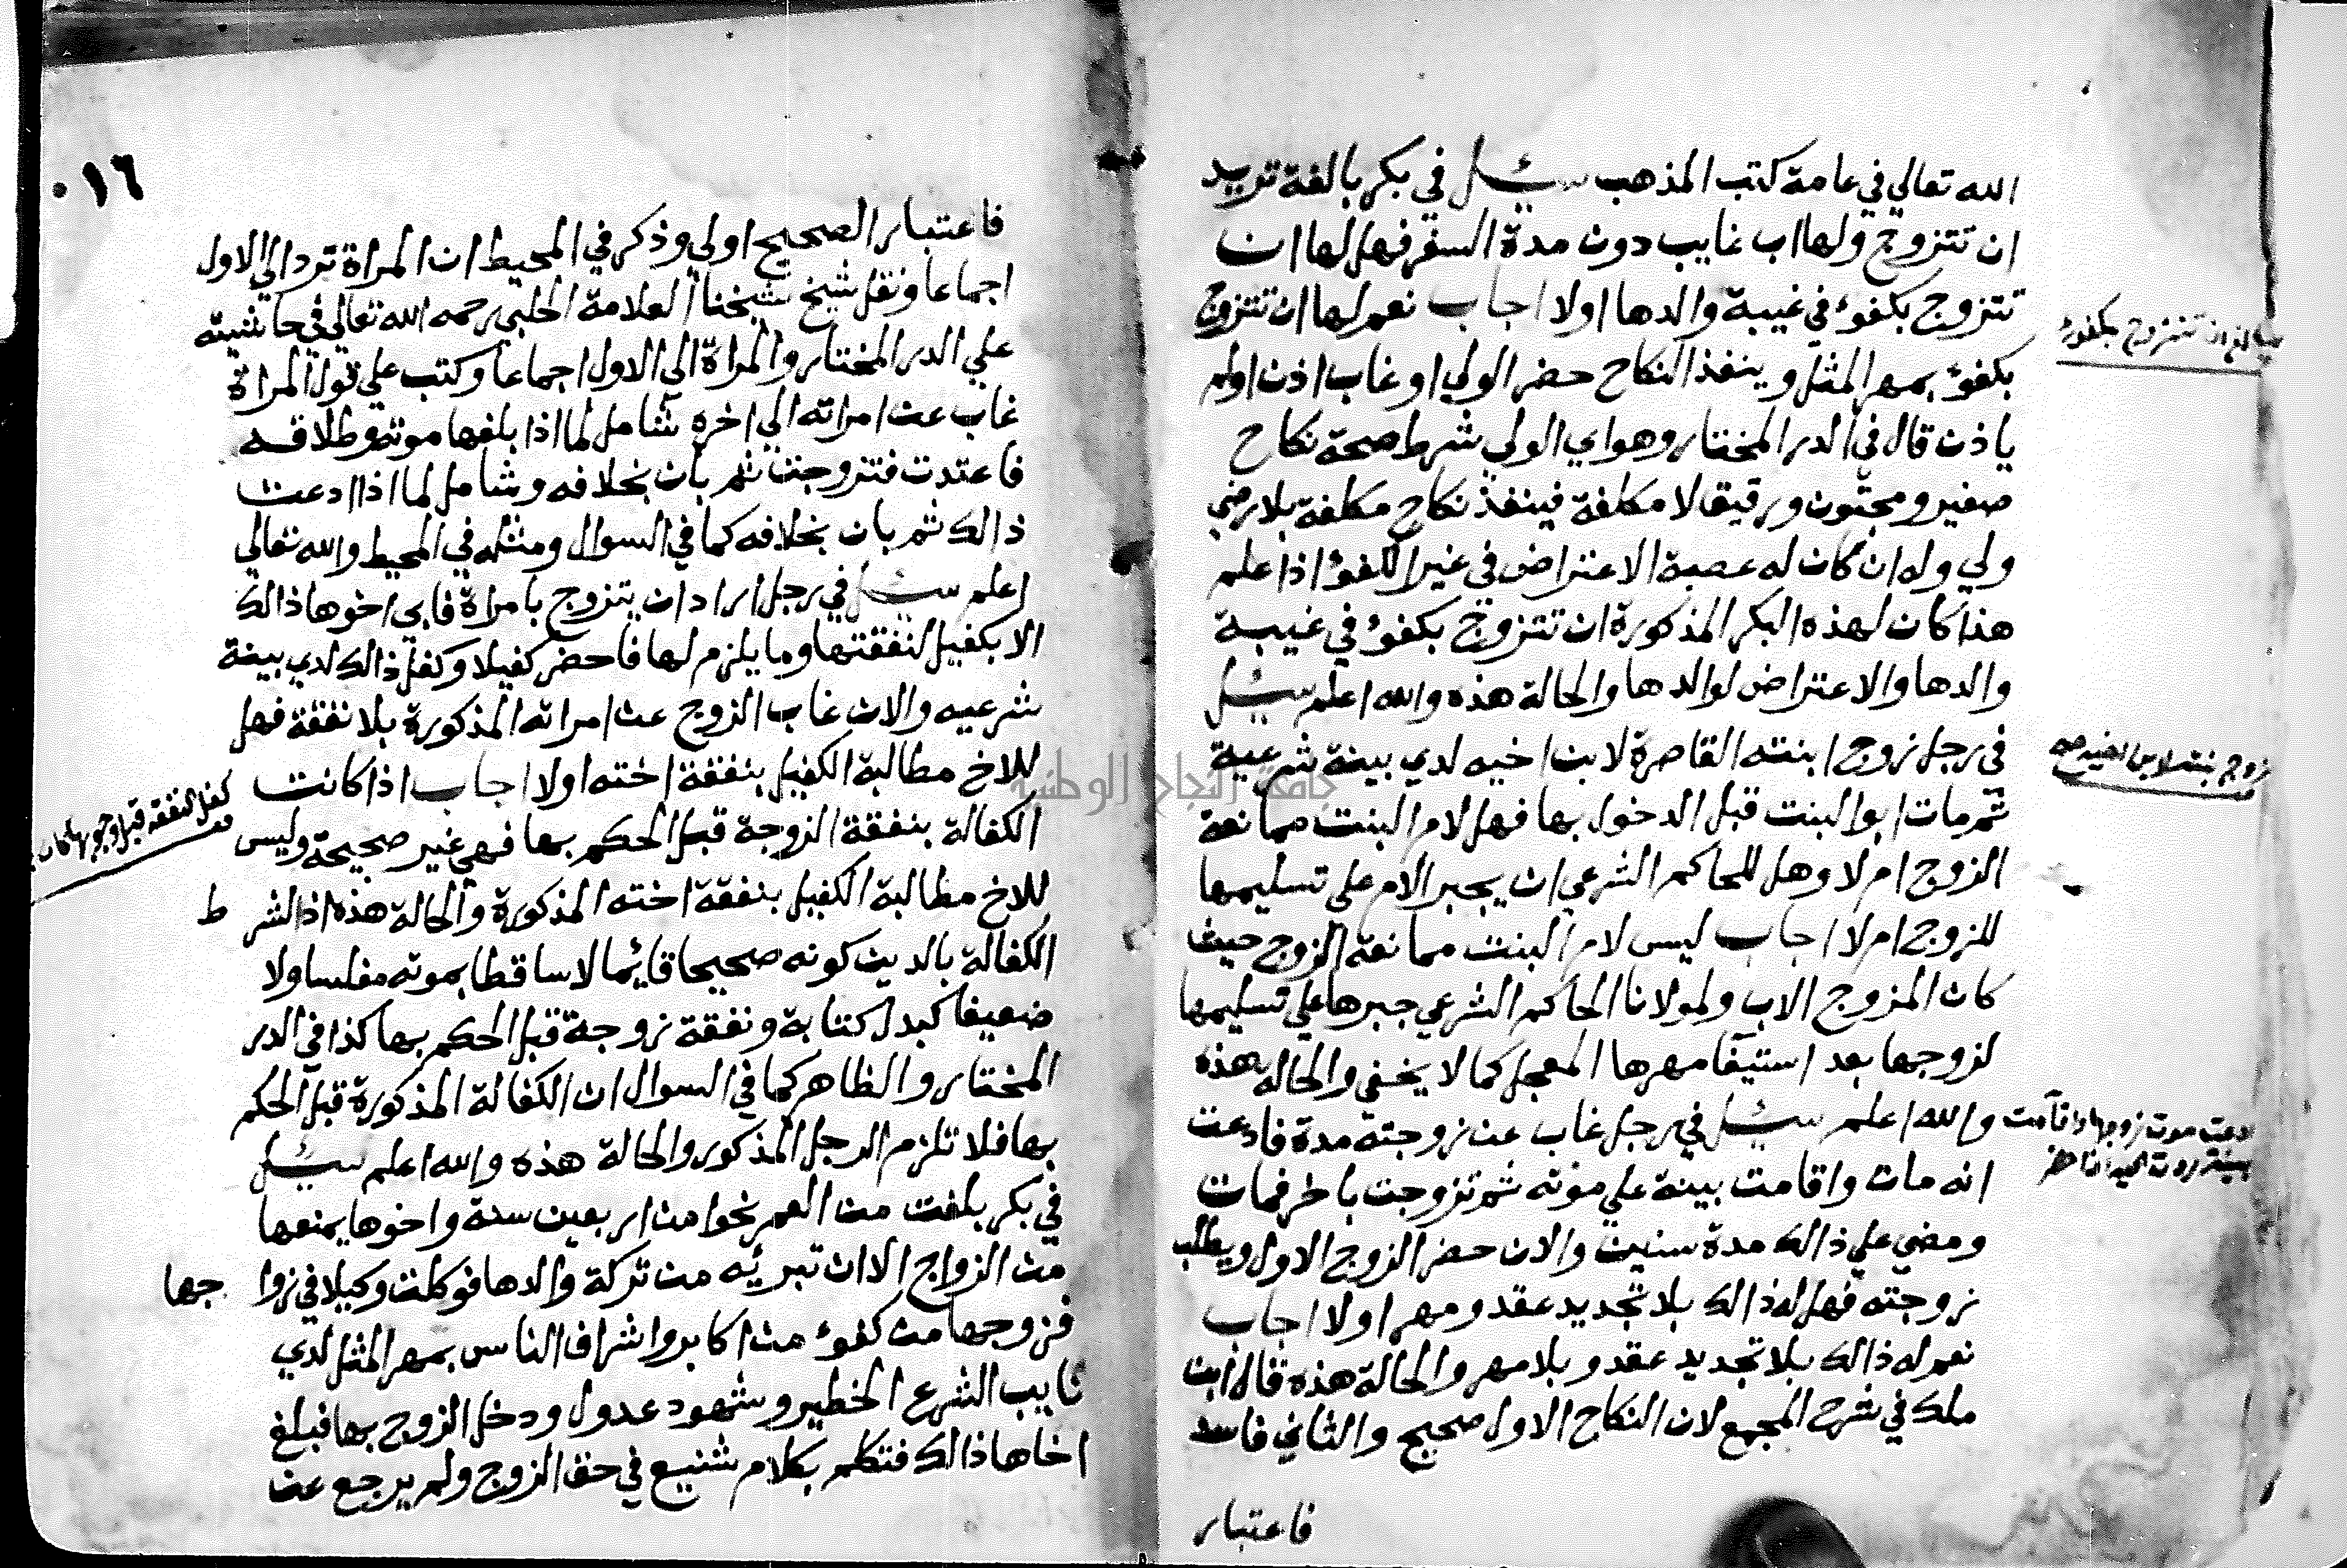 الله تعالي في عامة كتب المذهب سئل في بكر بالغة تريد
ان تتزوج ولها اب غايب دون مدة السفر فهل لها ان
تتزوج بكفوء في غيبة والدها اولا اجاب نعم لها ان تتزوج
بكفوء بمهر المثل وينفذ النكاح حضر الولي او غاب اذن اولم
ياذن قال في الدر المختار وهو اي الولي شرط صحة نكاح
صغير ومجنون ورقيق لا مكلفة فينفذ نكاح مكلفة بلا رضي
ولي وله ان كان له عصبة الاعتراض في غير الكفوء اذا علم
هذا كان لهذه البكر المذكورة ان تتزوج بكفوء في غيبة
والدها والاعتراض لوالدها والحالة هذه والله اعلم سئل
في رجل زوج ابنته القاصرة لابن اخيه لدي بينة شرعية
ثم مات ابو البنت قبل الدخول بها فهل لام البنت ممانعة
الزوج ام لا وهل للحاكم الشرعي ان يجبر الام علي تسليمها
للزوج ام لا اجاب ليس لام البنت ممانعة الزوج حيث
كان المزوج الاب ولمولانا الحاكم الشرعي جبرها علي تسليمها
لزوجها بعد استيفا مهرها المعجل كما لا يخفي والحالة هذه
والله اعلم سئل في رجل غاب عن زوجته مدة فادعت
انه مات واقامت بينة علي موته ثم تزوجت باخر فمات
ومضي علي ذالك مدة سنين والان حضر الزوج الاول ويطلب
زوجته فهل له ذالك بلا تجديد عقد ومهر اولا اجاب
نعم له ذالك بلا تجديد عقد وبلا مهر والحالة هذه قال ابن
ملك في شرح المجمع لان النكاح الاول صحيح والثاني فاسد
فاعتبار
ان تتزوج بكفوء
زوج بنته لابن اخيه
ادعت موت زوجها واقامت
بينة ردت اليه اذا حضر
٠١٦
فاعتبار الصحيح اولي وذكر في المحيط ان المراة ترد الي الاول
اجماعا ونقل شيخ شيخنا العلامة الحلبي رحمه الله تعالي في حاشيته
علي الدر المختار والمراة الي الاول اجماعا وكتب علي قول المراة
غاب عن امراته الي اخره شامل لما اذا بلغها موته وطلاقه
فاعتدت فتزوجت ثم بان بخلافه وشامل لما اذا ادعت
ذالك ثم بان بخلافه كما في السوال ومثله في المحيط والله تعالي
اعلم سئل في رجل اراد ان يتزوج بامراة فابي اخوها ذالك
الا بكفيل لنفقتها وما يلزم لها فاحضر كفيلا وكفل ذالك لدي بينة
شرعيه والان غاب الزوج عن امراته المذكورة بلا نفقة فهل
للاخ مطالبة الكفيل بنفقة اخته اولا اجاب اذا كانت
الكفالة بنفقة الزوجة قبل الحكم بها فهي غير صحيحة وليس
للاخ مطالبة الكفيل بنفقة اخته المذكورة والحالة هذه اذ الشر ط
الكفالة بالدين كونه صحيحا قايما لا ساقطا بموته مفلسا ولا
ضعيفا كبدل كتابة ونفقة زوجة قبل الحكم بها كذا في الدر
المختار والظاهر كما في السوال ان الكفالة المذكورة قبل الحكم
بها فلا تلزم الرجل المذكور والحالة هذه والله اعلم سئل
في بكر بلغت من العمر نحوا من اربعين سنة واخوها يمنعها
من الزواج الا ان تبريه من تركة والدها فوكلت وكيلا في زوا جها
فزوجها من كفوء من اكابر واشراف الناس بمهر المثل لدي
نايب الشرع الخطير وشهود عدول ودخل الزوج بها فبلغ
اخاها ذالك فتكلم بكلام شنيع في حق الزوج ولم يرجع عن
كفل النفقة قبل وجوبها
جامعة النجاح الوطنية